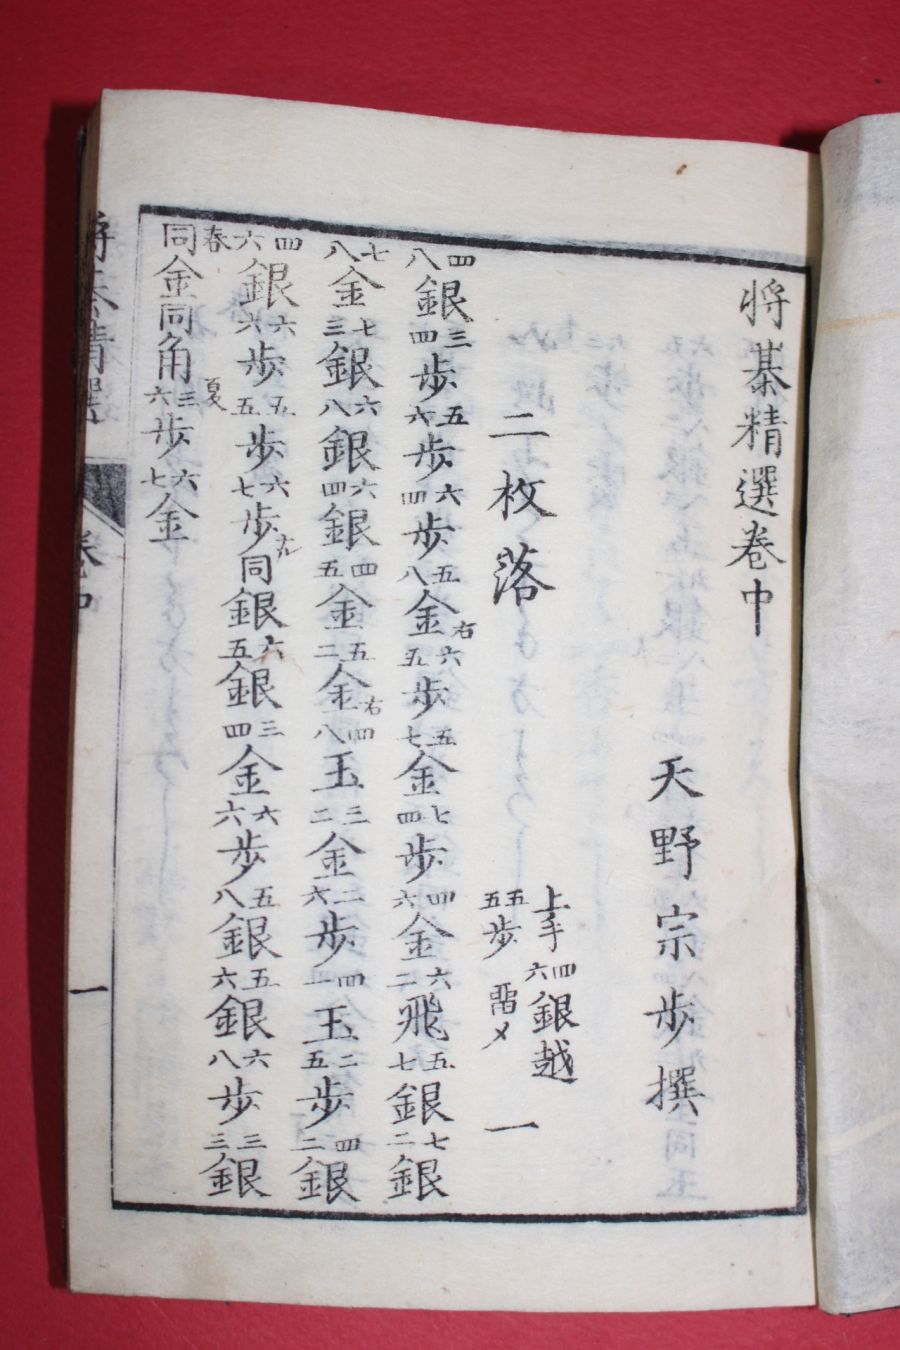 将棊精選卷中
天野宗歩撰
二枚落
上手四六銀越
五五歩畱メ
一
四八銀三四歩五六歩六四歩五八金右六五歩五七金七四歩四六金六二飛五七銀七二銀
七八金七三銀六八銀六四銀四五金五二金右四八玉三二金二六歩四一玉二五歩四二銀
四六銀六六歩五五歩六七歩ナル同銀六五銀三四金六六歩五八銀五六銀六八歩三三銀
春同金同角夏三六歩六七金
将棊精選
卷中
一